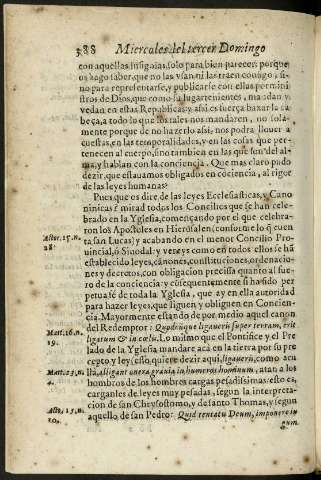 588 Miercoles del tercer Domingo
con aquellas insignias, solo para bien parecer, porque
os hago saber, que no las vsan ni las traen consigo, si
no para representarse, y publicarse con ellas por mini
stros de Dios, que como su lugartenientes, mandan y
vedan en estas Republicas y asi es fuerça baxar la ca
beça, a todo lo que los tales nos mandaren, no sola-
mente porque de no hazerlo assi, nos podra lleuar a
cuestas, en las temporalidades, y en las cosas que per-
tenecen al cuerpo, sino tambien en las que son del al-
ma, y hablan con la conciencia. Que mas claro pudo
dezir, que estauamos obligados en cõciencia, al rigor
de las leyes humanas?
Pues que os dire, de las leyes Ecclesiasticas, y Cano
ninicas? mirad todos los Concilios que se han cele-
brado en la Yglesia, començando por el que celebra-
ron los Apostoles en Hierusalen (conforme lo q̃ cuen
ta san Lucas) y acabando en el menor Concilio Pro-
uincial, o Sinodal y vereys como en todos ellos se hã
establecido leyes, canones, constituciones, ordenacio-
nes y decretos, con obligacion precissa quanto al fue-
ro de la conciencia y consequentemente si han sido per
petua fè de toda la Yglesia, que ay en ella autoridad
para hazer leyes, que liguen y obliguen en Concien-
cia. Mayormente estando de por medio aquel canon
del Redemptor: Quodcunque ligaueris super terram, erit
ligatum & in cœlis. Lo mismo que el Pontifice y el Pre
lado de la Yglesia mandare acà en la tierra por su pre
cepto y ley (esso quiere dezir aqui, ligaueris, como acu
lla, Alligant onera grauia, in humeros hominum, atan a los
hombros de los hombres cargas pesadissimas: esto es,
carganles de leyes muy pesadas, segun la interpreta-
cion de san Chrysostomo, y de santo Thomas, y segun
aquello de san Pedro: Quid tentatis Deum, imponere iu
gum
Actor. 15. n.
28.
Matt. 16. n.
19.
Matt. 23. n.
4.
Acto. 15. n.
10.